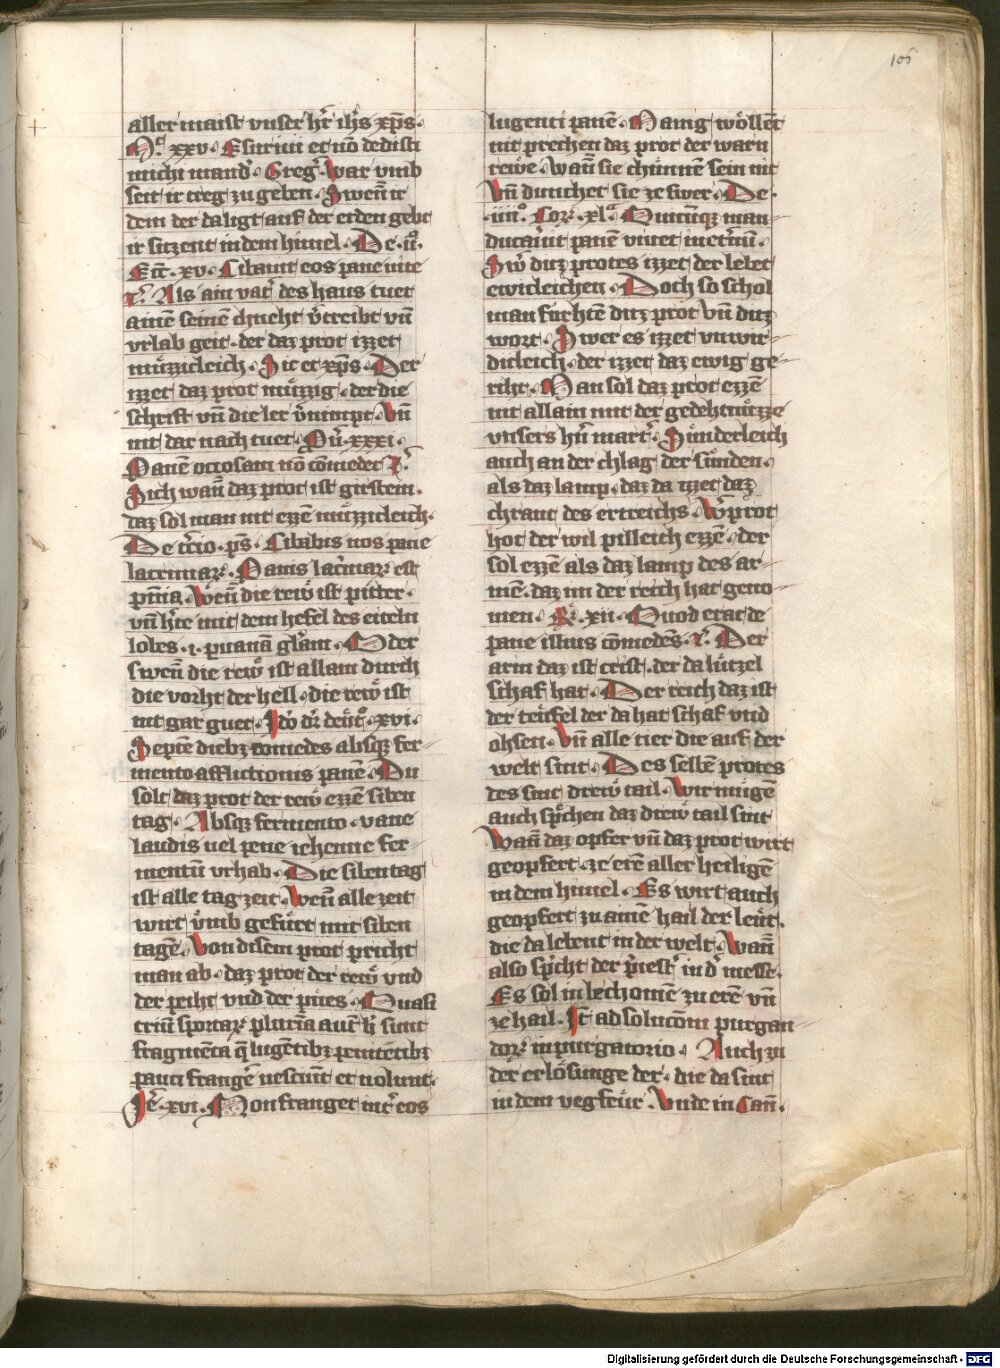 105
aller maist vnser hr̄ ihs xp̄s.
Mᵃ. xxv. Esuriui et nō dedisti
michi mand'. Greg'. War vmb
seit ir treg zu geben. Swen̄ ir
dem der da ligt auf der erden gebt
ir sitzent in dem himel. De .ijº.
Ecc̄. xv. Cibauit eos pane vite
⁊c̄. Als ain vat' des haus tuet
ainē seinē chneht v̄treibt vn̄
vrlab geit. der daz prot izzet
muͤzzicleich. Sic et xp̄s. Der
izzet daz prot muͤzzig. der die
schrift vn̄ die ler v̄nimpt. Vn̄
nit dar nach tuet. Pū. xxxi.
Panē occiosam nō cōmedet ⁊c̄.
Sich wan̄ daz prot ist girstein.
daz sol man nit ezzē muͤzzicleich.
De t'cio. ps̄. Cibabis nos pane
lacrimaꝝ. Panis lac'maꝝ est
pn̄ia. Wen̄ die rew̄ ist pitter.
vn̄ h'te mit dem hefel des eiteln
lobes. .i. pruanā gl'am. Oder
swen̄ die rew̄ ist allain durch
die vorht der hell. die rew̄ ist
nit gar guet. Jdō dr̄ deutº. xvi.
Septē diebꝫ comedes absqꝫ fer
mento afflictionis panē. Du
solt daz prot der rew̄ ezzē siben
tag. Absqꝫ fermento. vane
laudis uel pene iehenne fer
mentū vrhab. Die siben tag
ist alle tag zeit. Wen̄ alle zeit
wirt v̄mb gefuͤrt mit siben
tagē. Von disem prot pricht
man ab. daz prot der rew̄ vnd
der peiht vnd der pues. Quasi
triū sportaꝝ pluria aut' h' sunt
fragmēta q̄ lugētibꝫ penitētibꝫ
pauci frangē nesciūt et nolunt.
Je'. xvi. Non franget int' eos
lugenti panē. Manig woͤllēt
nit prechen daz prot der warn
rewe. Wan̄ sie chuͤnnen sein nit
Vn̄ dunchet sie ze swer. De.
.iiijº. Coꝝ. xlº. Quicūqꝫ man
ducau'it panē viuet inet'nū.
Sw' ditz protes izzet der lebet
ewicleichen. Doch so schol
man fuͤrhtē ditz prot vn̄ ditz
wort. Swer es izzet vnwir
dicleich. der izzet daz ewig ge
riht. Man sol daz prot ezzē
nit allain mit der gedehtnuͤzze
vnsers hn̄ mart'. Suͤnderleich
auch an der chlag der suͤnden.
als daz lamp. daz da izzet daz
chraut des ertreichs. W' prot
hot der wil pilleich ezzē. der
sol ezzē als daz lamp des ar
mē. daz im der reich hat geno
men. R'. xii. Quod erat de
pane illius cōmedēs. ⁊c̄. Der
arm daz ist crist. der da luͤtzel
schaf hat. Der reich daz ist
der teuͤfel der da hat schaf vnd
ohsen. Vn̄ alle tier die auf der
welt sint. Des selbē protes
des sint drew̄ tail. Wir muͤgē
auch sp'chen daz drew̄ tail sint
Wan̄ daz opfer vn̄ daz prot wirt
geopfert. ze erē aller heiligē
in dem himel. Es wirt auch
geopfert zu ainē hail der leuͤt.
die da lebent in der welt. Wan̄
also sp'cht der p'iest' in d' messe.
Es sol in bechomē zu erē vn̄
ze hail. Jt ad solucōm purgan
doꝝ in purgatorio. Auch zu
der erloͤsunge der. die da sint
in dem vegfeuͤr. Vnde in Can̄.
Digitalisierung gefördert durch die Deutsche Forschungsgemeinschaft - DFG